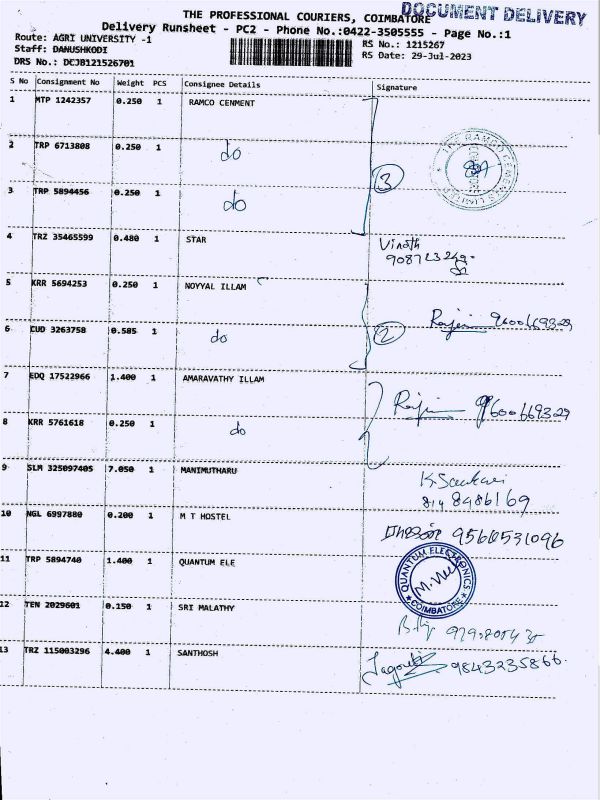 DOCUMENT DELIVERY
THE PROFESSIONAL COURIERS, COIMBATORE
Delivery Runsheet - PC2 - Phone No.:0422-3505555 - Page No.:1
Route: AGRI UNIVERSITY -1
RS No.: 1215267
Staff: DANUSHKODI
RS Date: 29-Jul-2023
DRS No.: DCJB121526701
S No Consignment No Weight PCS Consignee Details Signature
1 MTP 1242357 0.250 1 RAMCO CENMENT
2 TRP 6713808 0.250 1 do
3 TRP 5894456 0.250 1 do
3
RAMCO CEMENTS LIMITED
4 TRZ 35465599 0.480 1 STAR Vinoth
5 KRR 5694253 0.250 1 NOYYAL ILLAM
6 CUD 3263758 0.585 1 do 2 9600669329
7 EDQ 17522966 1.400 1 AMARAVATHY ILLAM
8 KRR 5761618 0.250 1 do 9600669329
9 SLM 325097405 7.050 1 MANIMUTHARU
814 8486169
10 NGL 6997880 0.200 1 M T HOSTEL 9566531096
11 TRP 5894740 1.400 1 QUANTUM ELE
QUANTUM ELECTRONICS
COIMBATORE
12 TEN 2029601 0.150 1 SRI MALATHY
13 TRZ 115003296 4.400 1 SANTHOSH 9843235866